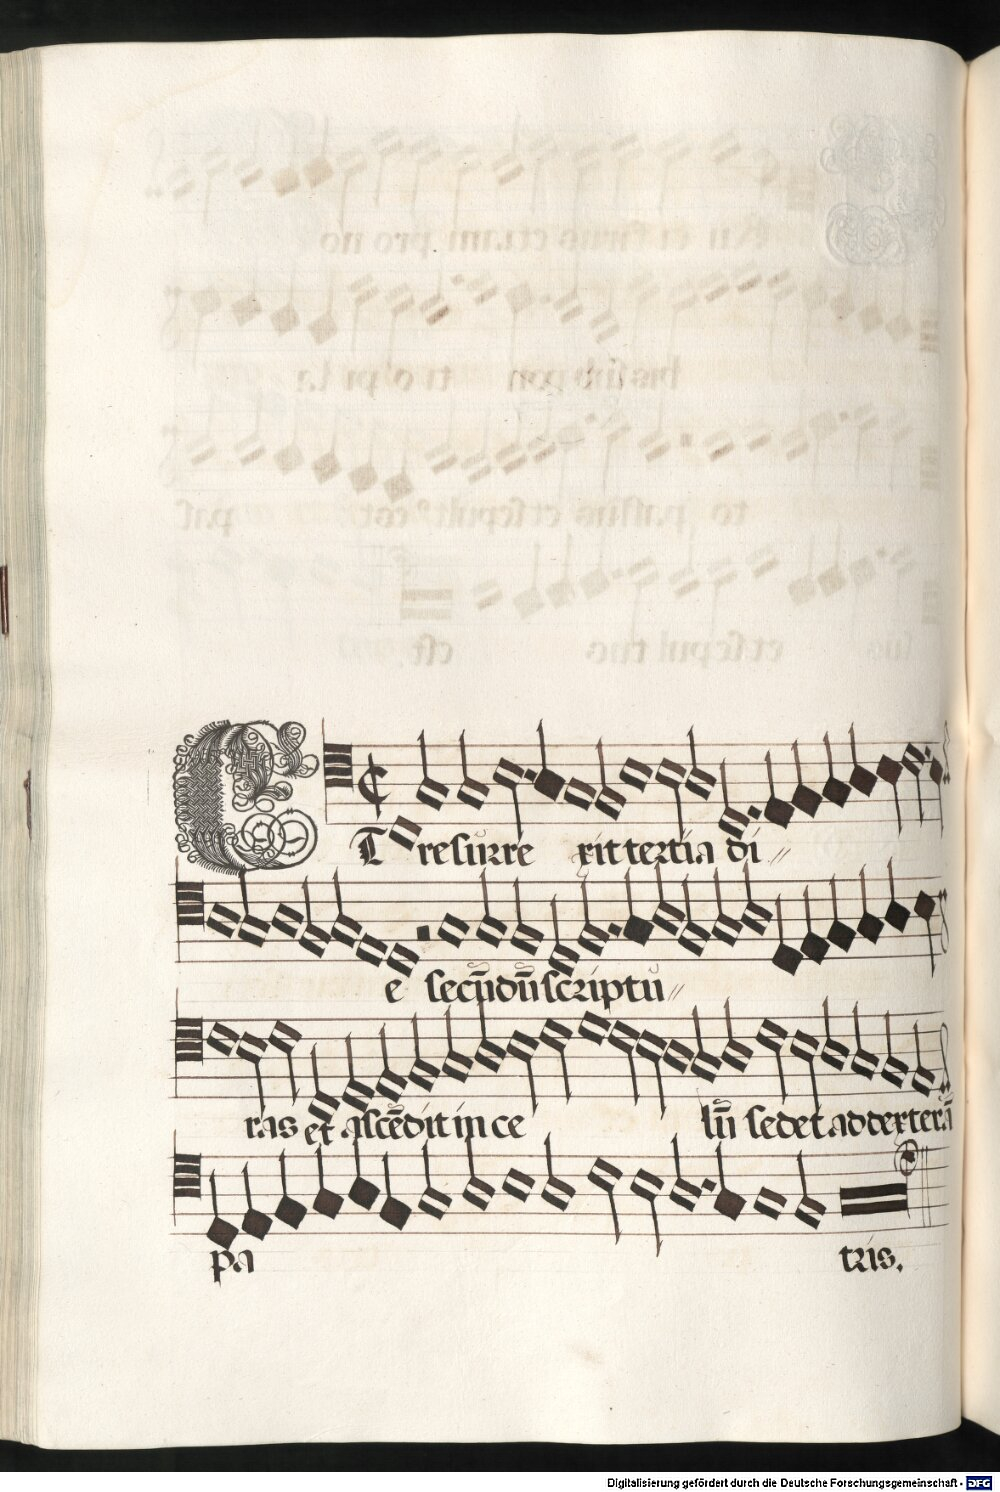 Et resurre xit tertia di //
e secūdū scriptu //
ras et ascēdit in ce lū sedet ad dexterā
pa tris.
Digitalisierung gefördert durch die Deutsche Forschungsgemeinschaft - DFG